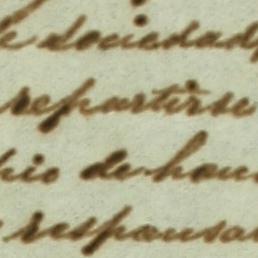 e sociedad
repartirse
pio de hon
responsa